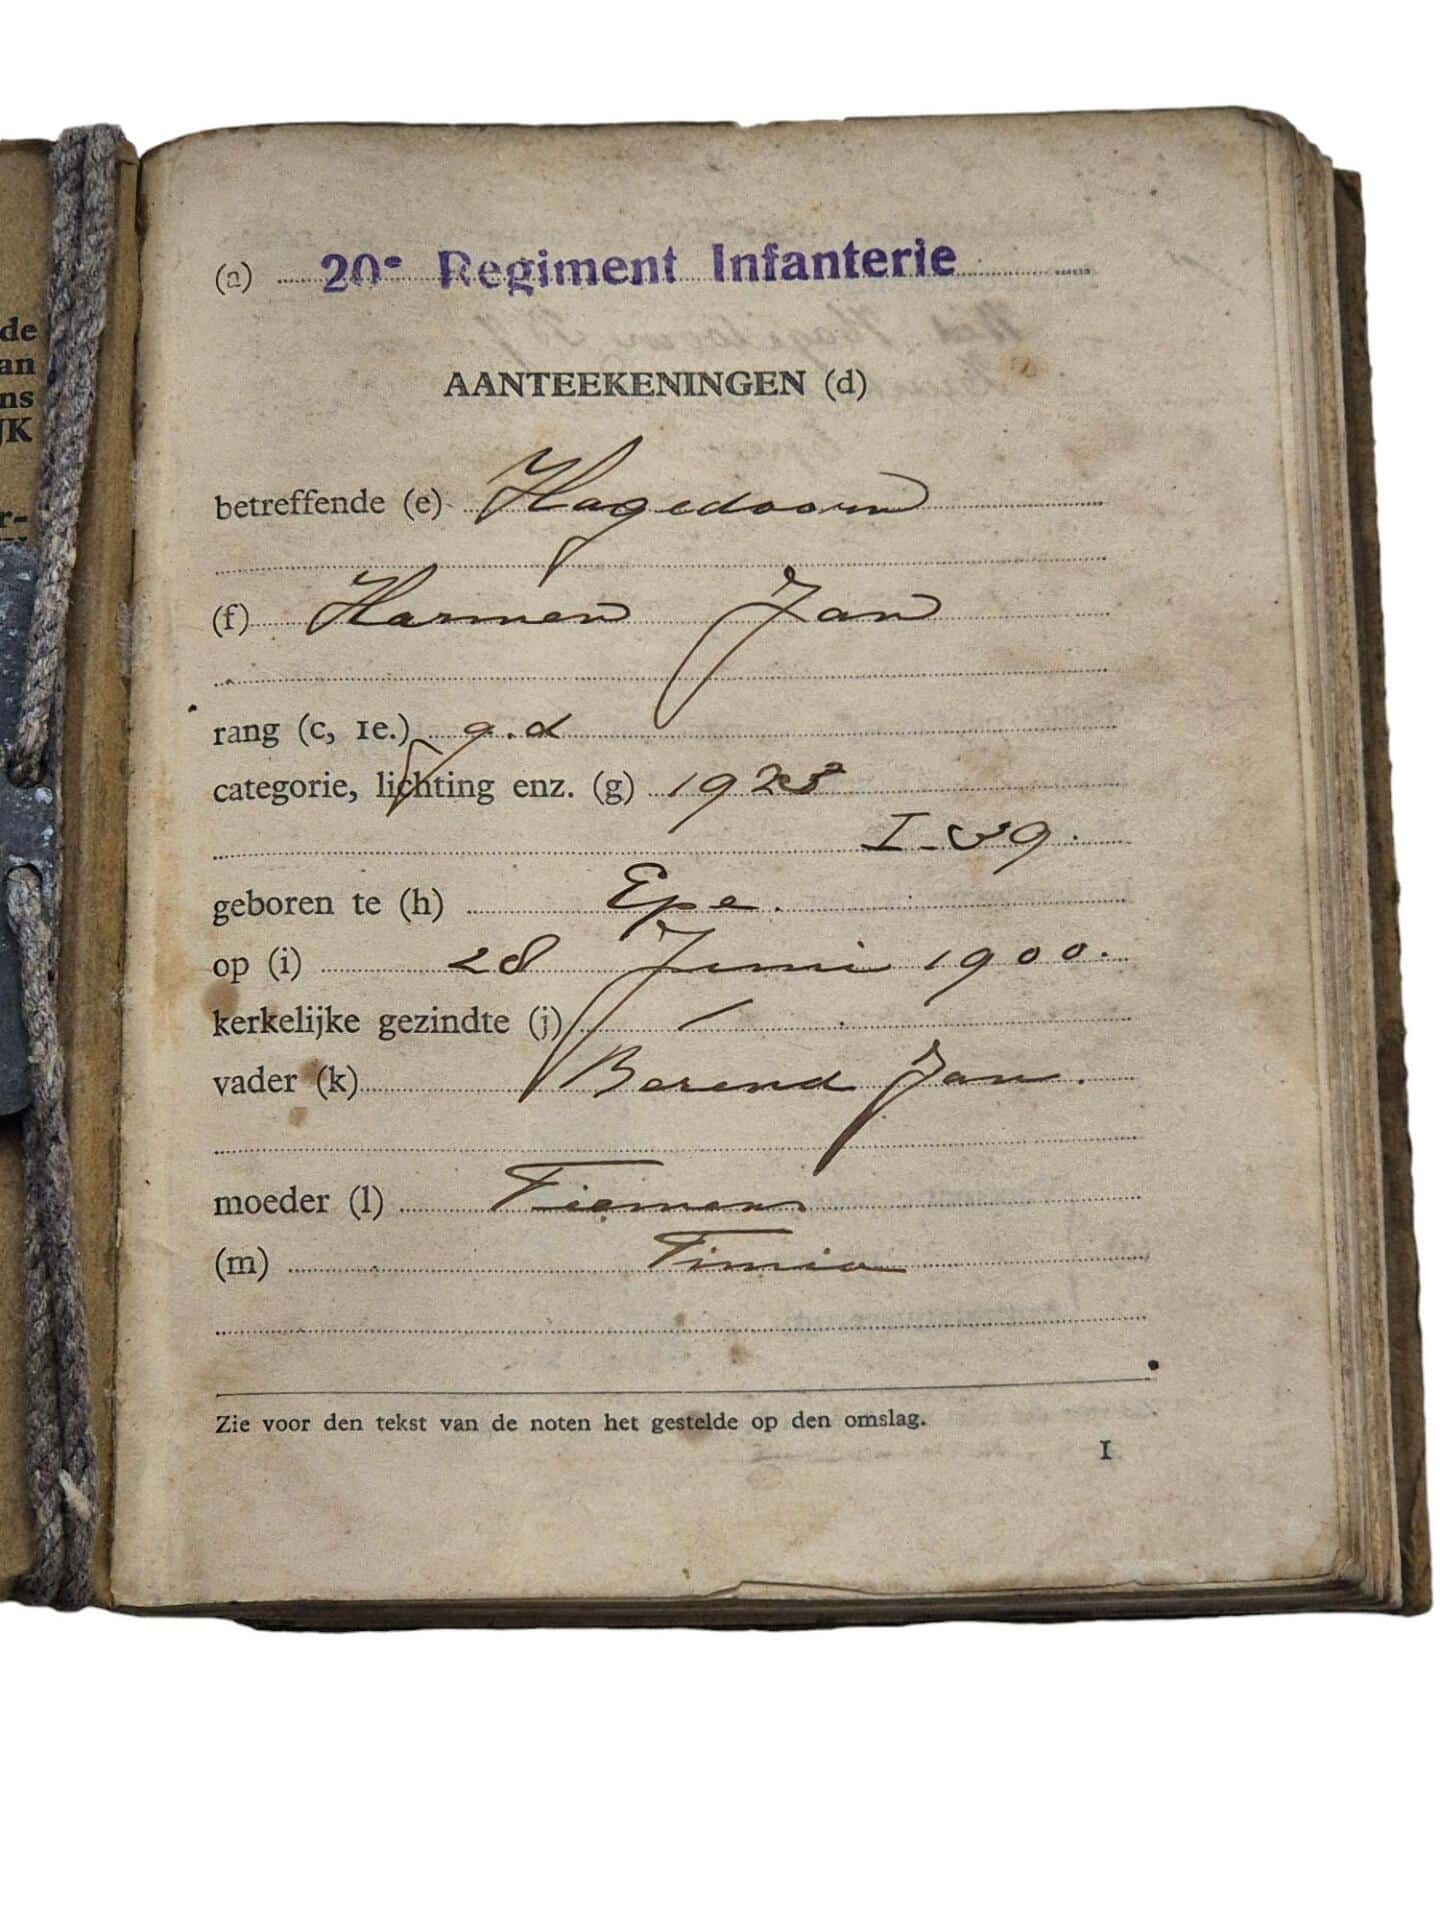 de
an
ns
JK
r-
(a) 20e Regiment Infanterie
AANTEEKENINGEN (d)
betreffende (e) Hagedoorn
(f) Harmen Jan
rang (c, 1e.) g.d
categorie, lichting enz. (g) 1928
I-39.
geboren te (h) Epe.
op (i) 28 Juni 1900.
kerkelijke gezindte (j) /
vader (k) Berend Jan.
moeder (l) Tiemens
(m) Timia
Zie voor den tekst van de noten het gestelde op den omslag.
1